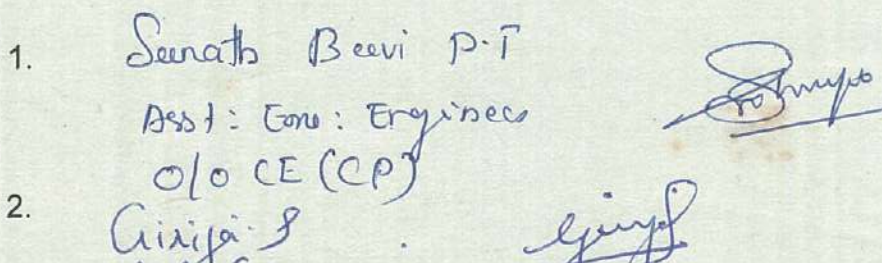 1. Seenath Beevi P.T
Asst: Exe: Engineer
O/o CE (CP)
2. Girija.S